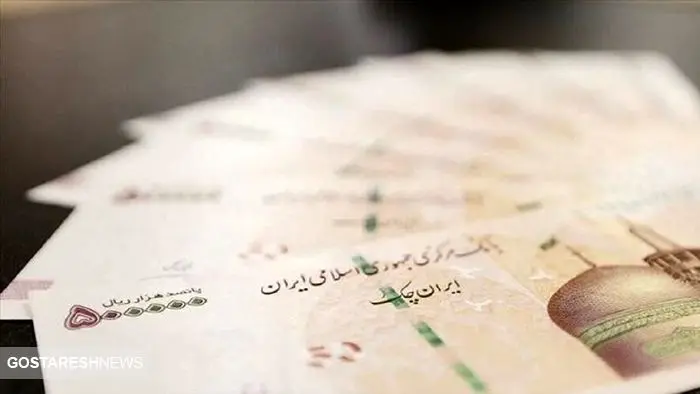 بانک مرکزی جمهوری اسلامی ایران
ایران چک
پانصد هزار ریال
۵۰۰۰۰۰
GOSTARESHNEWS